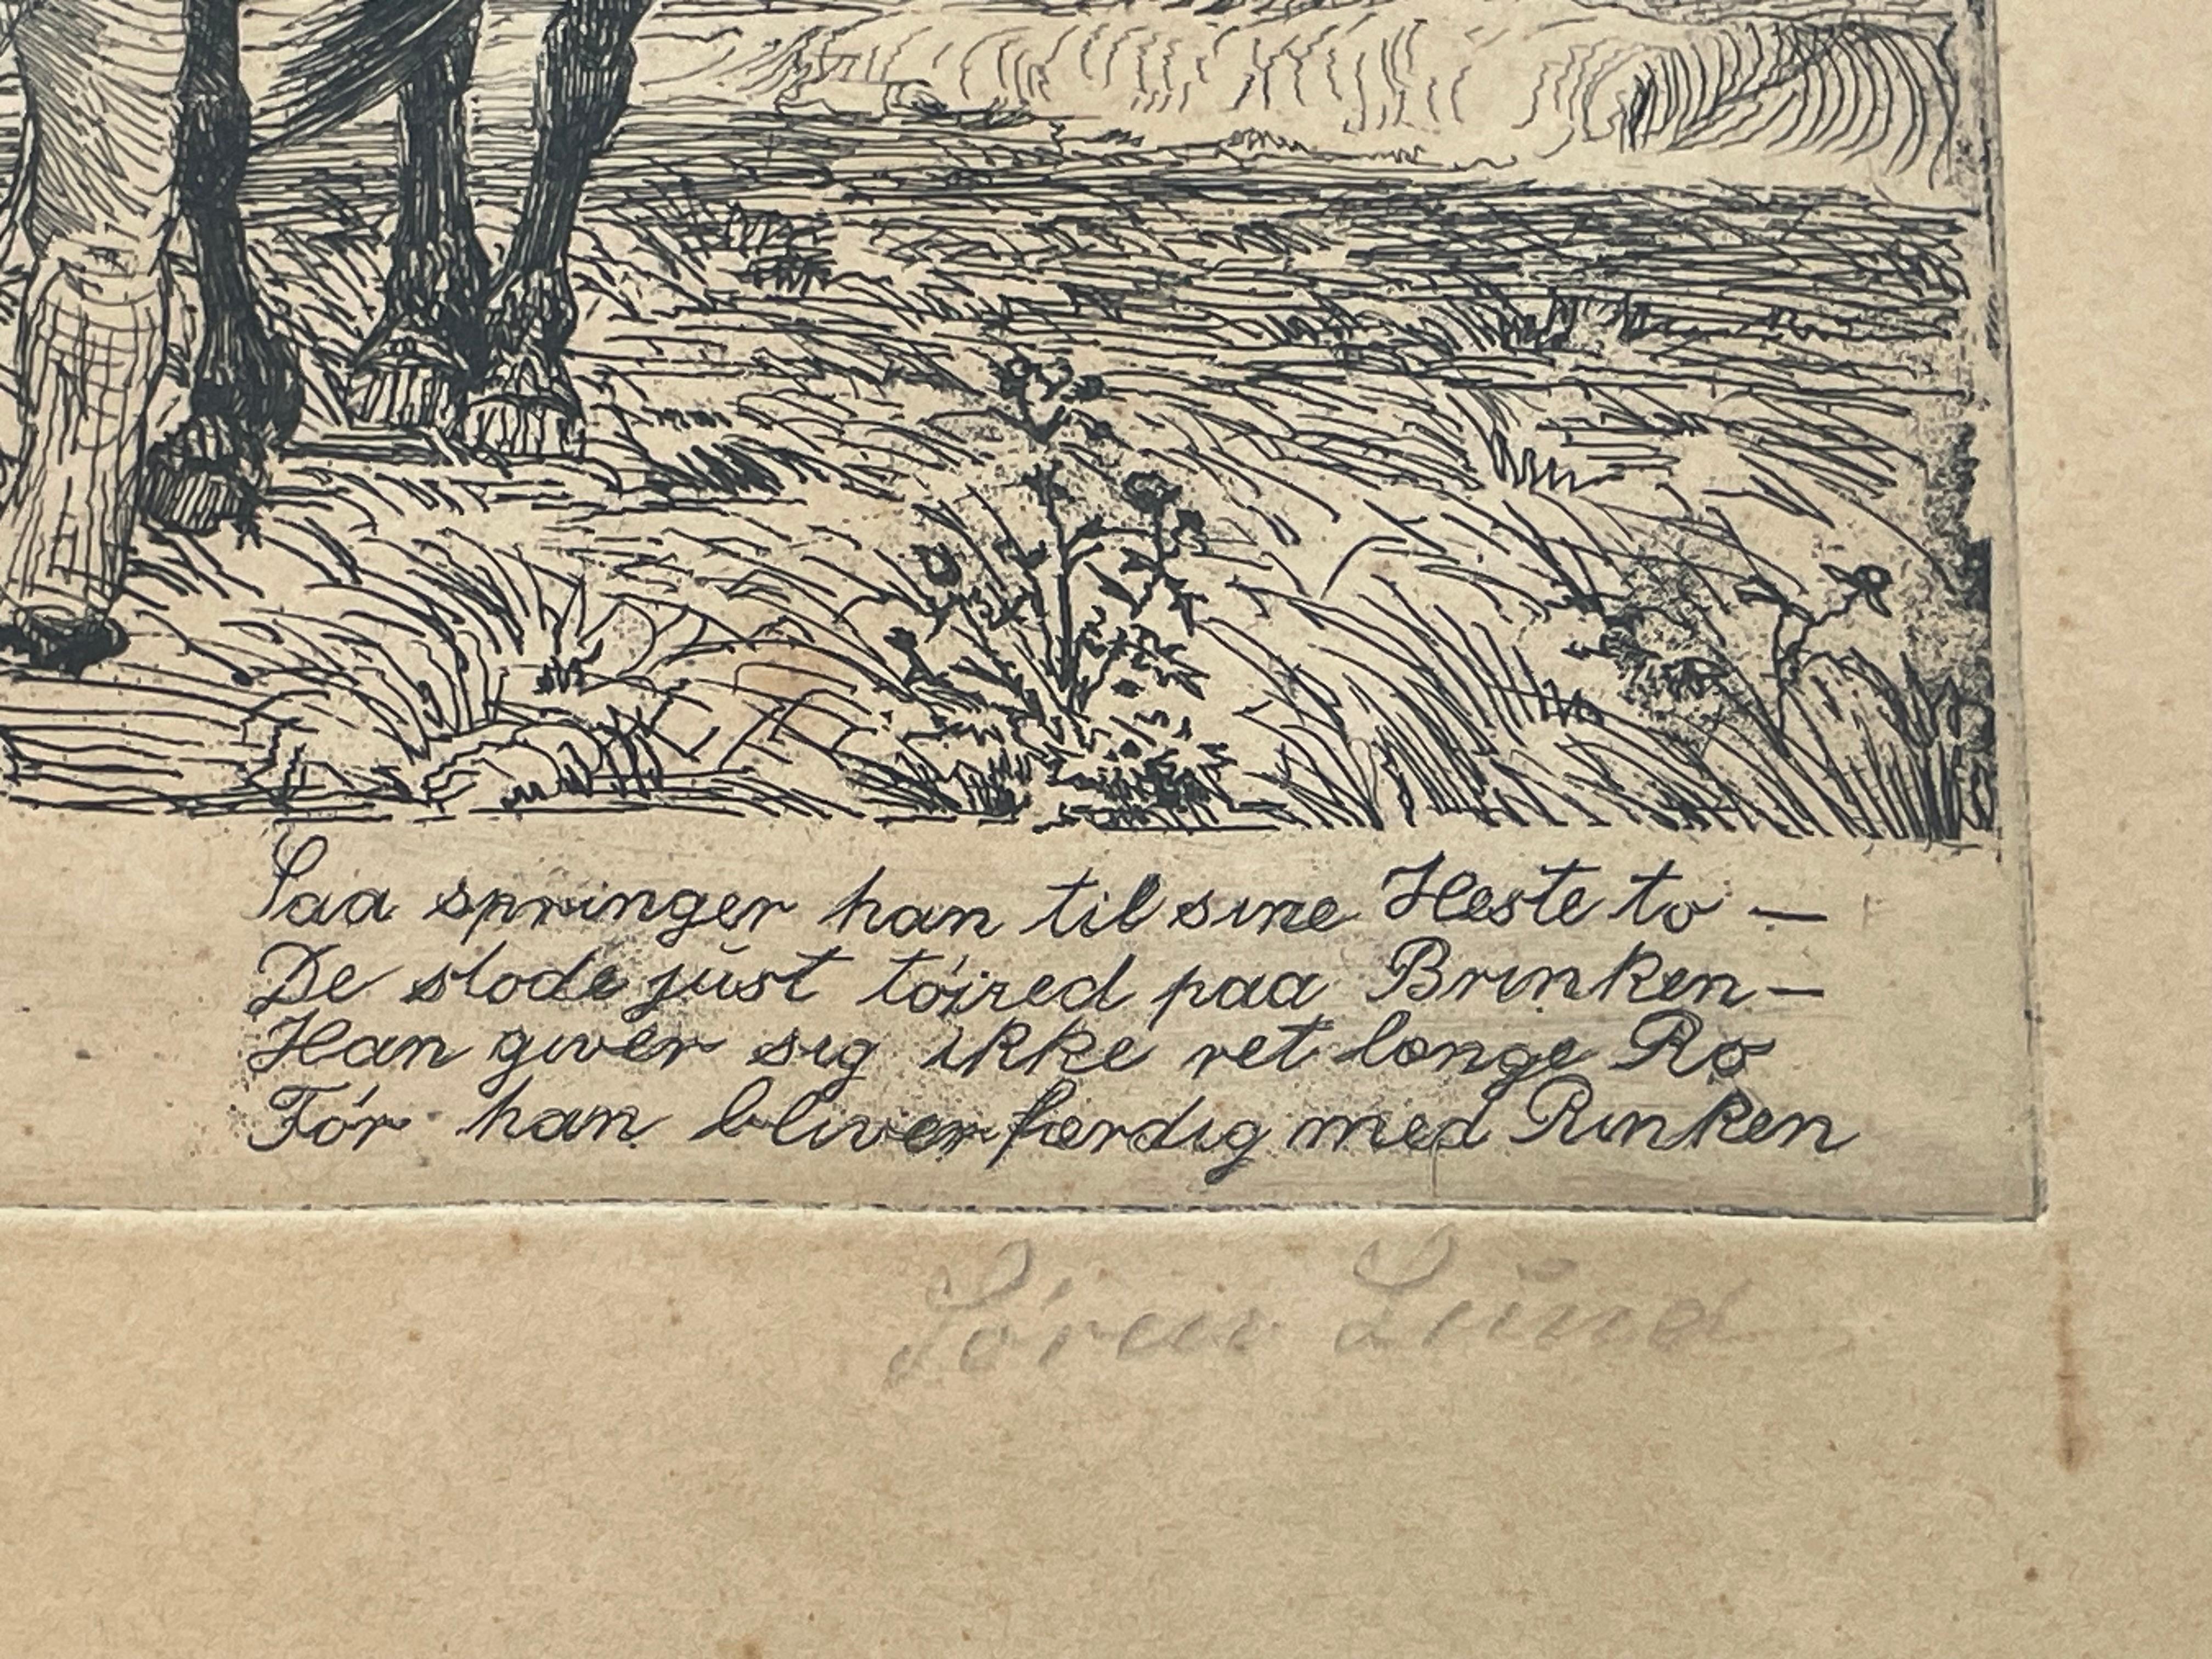 Saa springer han til sine Heste to —
De stode just tóired paa Brinken —
Han giver sig ikke ret længe Ro
Fór han bliver færdig med Rinken
Sören Lund